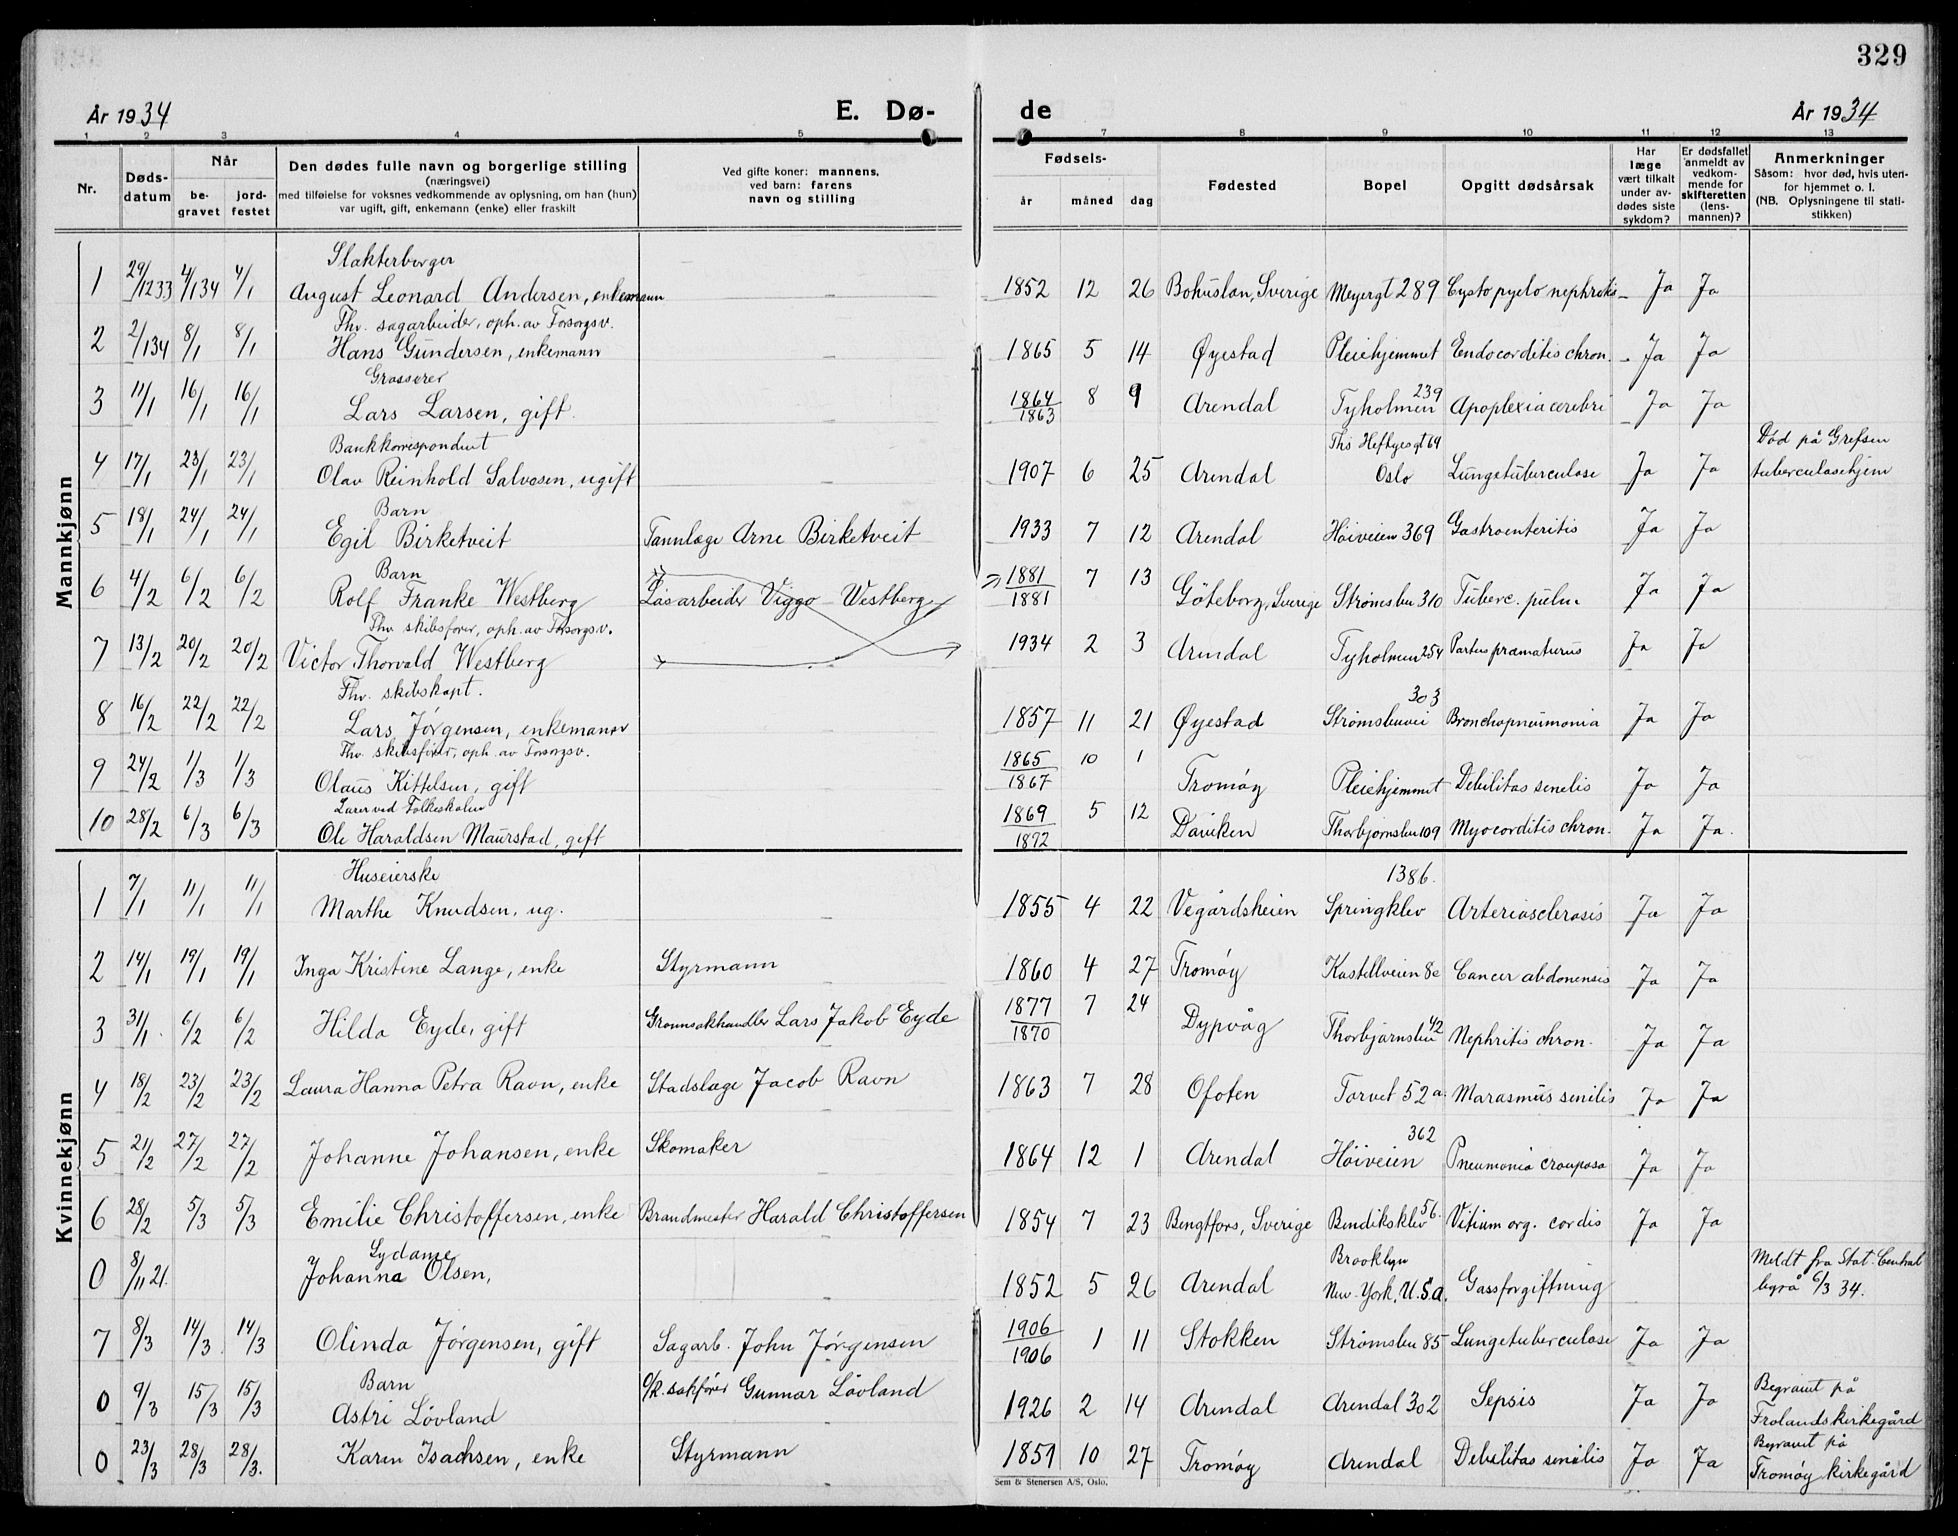 329
År 1934 E. Dø- de År 1934
1 2 3 4 5 7 8 9 10 11 12 13
Nr. Dødsdatum Når begravet jordfestet
Den dødes fulle navn og borgerlige stilling
(næringsvei)
med tilføielse for voksnes vedkommende av oplysning, om han (hun)
var ugift, gift, enkemann (enke) eller fraskilt
Ved gifte koner: mannens,
ved barn: farens
navn og stilling
Fødsels-
år måned dag
Fødested
Bopel
Opgitt dødsårsak
Har læge vært tilkalt under avdødes siste sykdom?
Er dødsfallet anmeldt av vedkommende for skifteretten (lensmannen)?
Anmerkninger
Såsom: hvor død, hvis utenfor hjemmet o. l.
(NB. Oplysningene til statistikken)
Mannkjønn
Slakterborger
1 29/12 33 4/1 34 4/1 August Leonard Andersen, enkemann — 1852 12 26 Bohuslän, Sverige Meyergt 289 Cystopyelo nephritis — Ja Ja
Fhv. sagarbeider, oph. av Forsorgsv.
2 2/1 34 8/1 8/1 Hans Gundersen, enkemann — 1865 5 14 Øyestad Pleiehjemmet Endocorditis chron. - Ja Ja
Grosserer
3 11/1 16/1 16/1 Lars Larsen, gift. — 1864/1863 8 9 Arendal Tyholmen 239 Apoplexia cerebri Ja Ja
Bankkorrespondent
4 17/1 23/1 23/1 Olav Reinhold Salvosen, ugift — 1907 6 25 Arendal Ths Heftyesgt 64 Oslo Lungetuberculose Ja Ja Död på Grefsen tuberculosehjem
Barn
5 18/1 24/1 24/1 Egil Birketveit Tannlæge Arne Birketveit 1933 7 12 Arendal Höiveien 369 Gastroenteritis Ja Ja
Barn
6 4/2 6/2 6/2 Rolf Franke Westberg Løsarbeider Viggo Westberg 1881/1881 7 13 Göteborg, Sverige Strømsbu 310 Tuberc. pulm. Ja Ja
Fhv. skibsfører, oph. av Forsorgsv.
7 13/2 20/2 20/2 Victor Thorvald Westberg 1934 2 3 Arendal Tyholmen 254 Partus præmaturus Ja Ja
Fhv. skibskapt.
8 16/2 22/2 22/2 Lars Jørgensen, enkemann 1857 11 21 Øyestad Strømsbuvei 303 Bronchopneumonia Ja Ja
Fhv. skibsfører, oph. av Forsorgsv.
9 24/2 1/3 1/3 Olaus Kittelsen, gift 1865/1867 10 1 Tromøy Pleiehjemmet Debilitas senilis Ja Ja
Lærer ved Folkeskolen
10 28/2 6/3 6/3 Ole Haraldsen Maurstad, gift 1869/1872 5 12 Daviken Thorbjørnsbu 109 Myocorditis chron. Ja Ja.
Kvinnekjønn
Huseierske
1 7/1 11/1 11/1 Marthe Knudsen, ug. — 1855 4 22 Vegårdsheien Springklev 1386. Arteriosclerosis Ja Ja
2 14/1 19/1 19/1 Inga Kristine Lange, enke Styrmann — 1860 4 27 Tromøy Kastellveien 8c Cancer abdonensis Ja Ja
3 31/1. 6/2 6/2 Hilda Eyde, gift Grønnsakhandler Lars Jakob Eyde 1877/1870 7 24 Dypvåg Thorbjørnsbu 42 Nephritis chron. Ja Ja
4 18/2 23/2 23/2 Laura Hanna Petra Ravn, enke Stadslæge Jacob Ravn 1863 7 28 Ofoten Torvet 52a. Marasmus senilis Ja Ja
5 21/2 27/2 27/2 Johanne Johansen, enke Skomaker — 1864 12 1 Arendal Höiveien 362 Pneumonia crouposa Ja Ja
6 28/2 5/3 5/3 Emilie Christoffersen, enke Brandmester Harald Christoffersen 1854 7 23 Bengtfors, Sverige Bendiksklev 56. Vitium org. cordis Ja Ja
Sydame
0 8/11 21. Johanna Olsen, 1852 5 26 Arendal Brooklyn New-York, U.S.a. Gassforgiftning Meldt fra Stat. Central byrå 6/3 34.
7 8/3 14/3 14/3 Olinda Jørgensen, gift Sagarb. John Jørgensen 1906/1906 1 11 Stokken Strømsbu 85 Lungetuberculose Ja Ja
Barn
0 9/3 15/3 15/3 Astri Lövland O/R. sakfører Gunnar Lövland 1926 2 14 Arendal Arendal 302 Sepsis Ja Ja Begravet på Frolands kirkegård
0 23/3 28/3 28/3. Karen Isachsen, enke Styrmann 1851 10 27 Tromøy Arendal Debilitas senilis Ja Ja Begravet på Tromøy kirkegård
Sem & Stenersen A/S, Oslo.